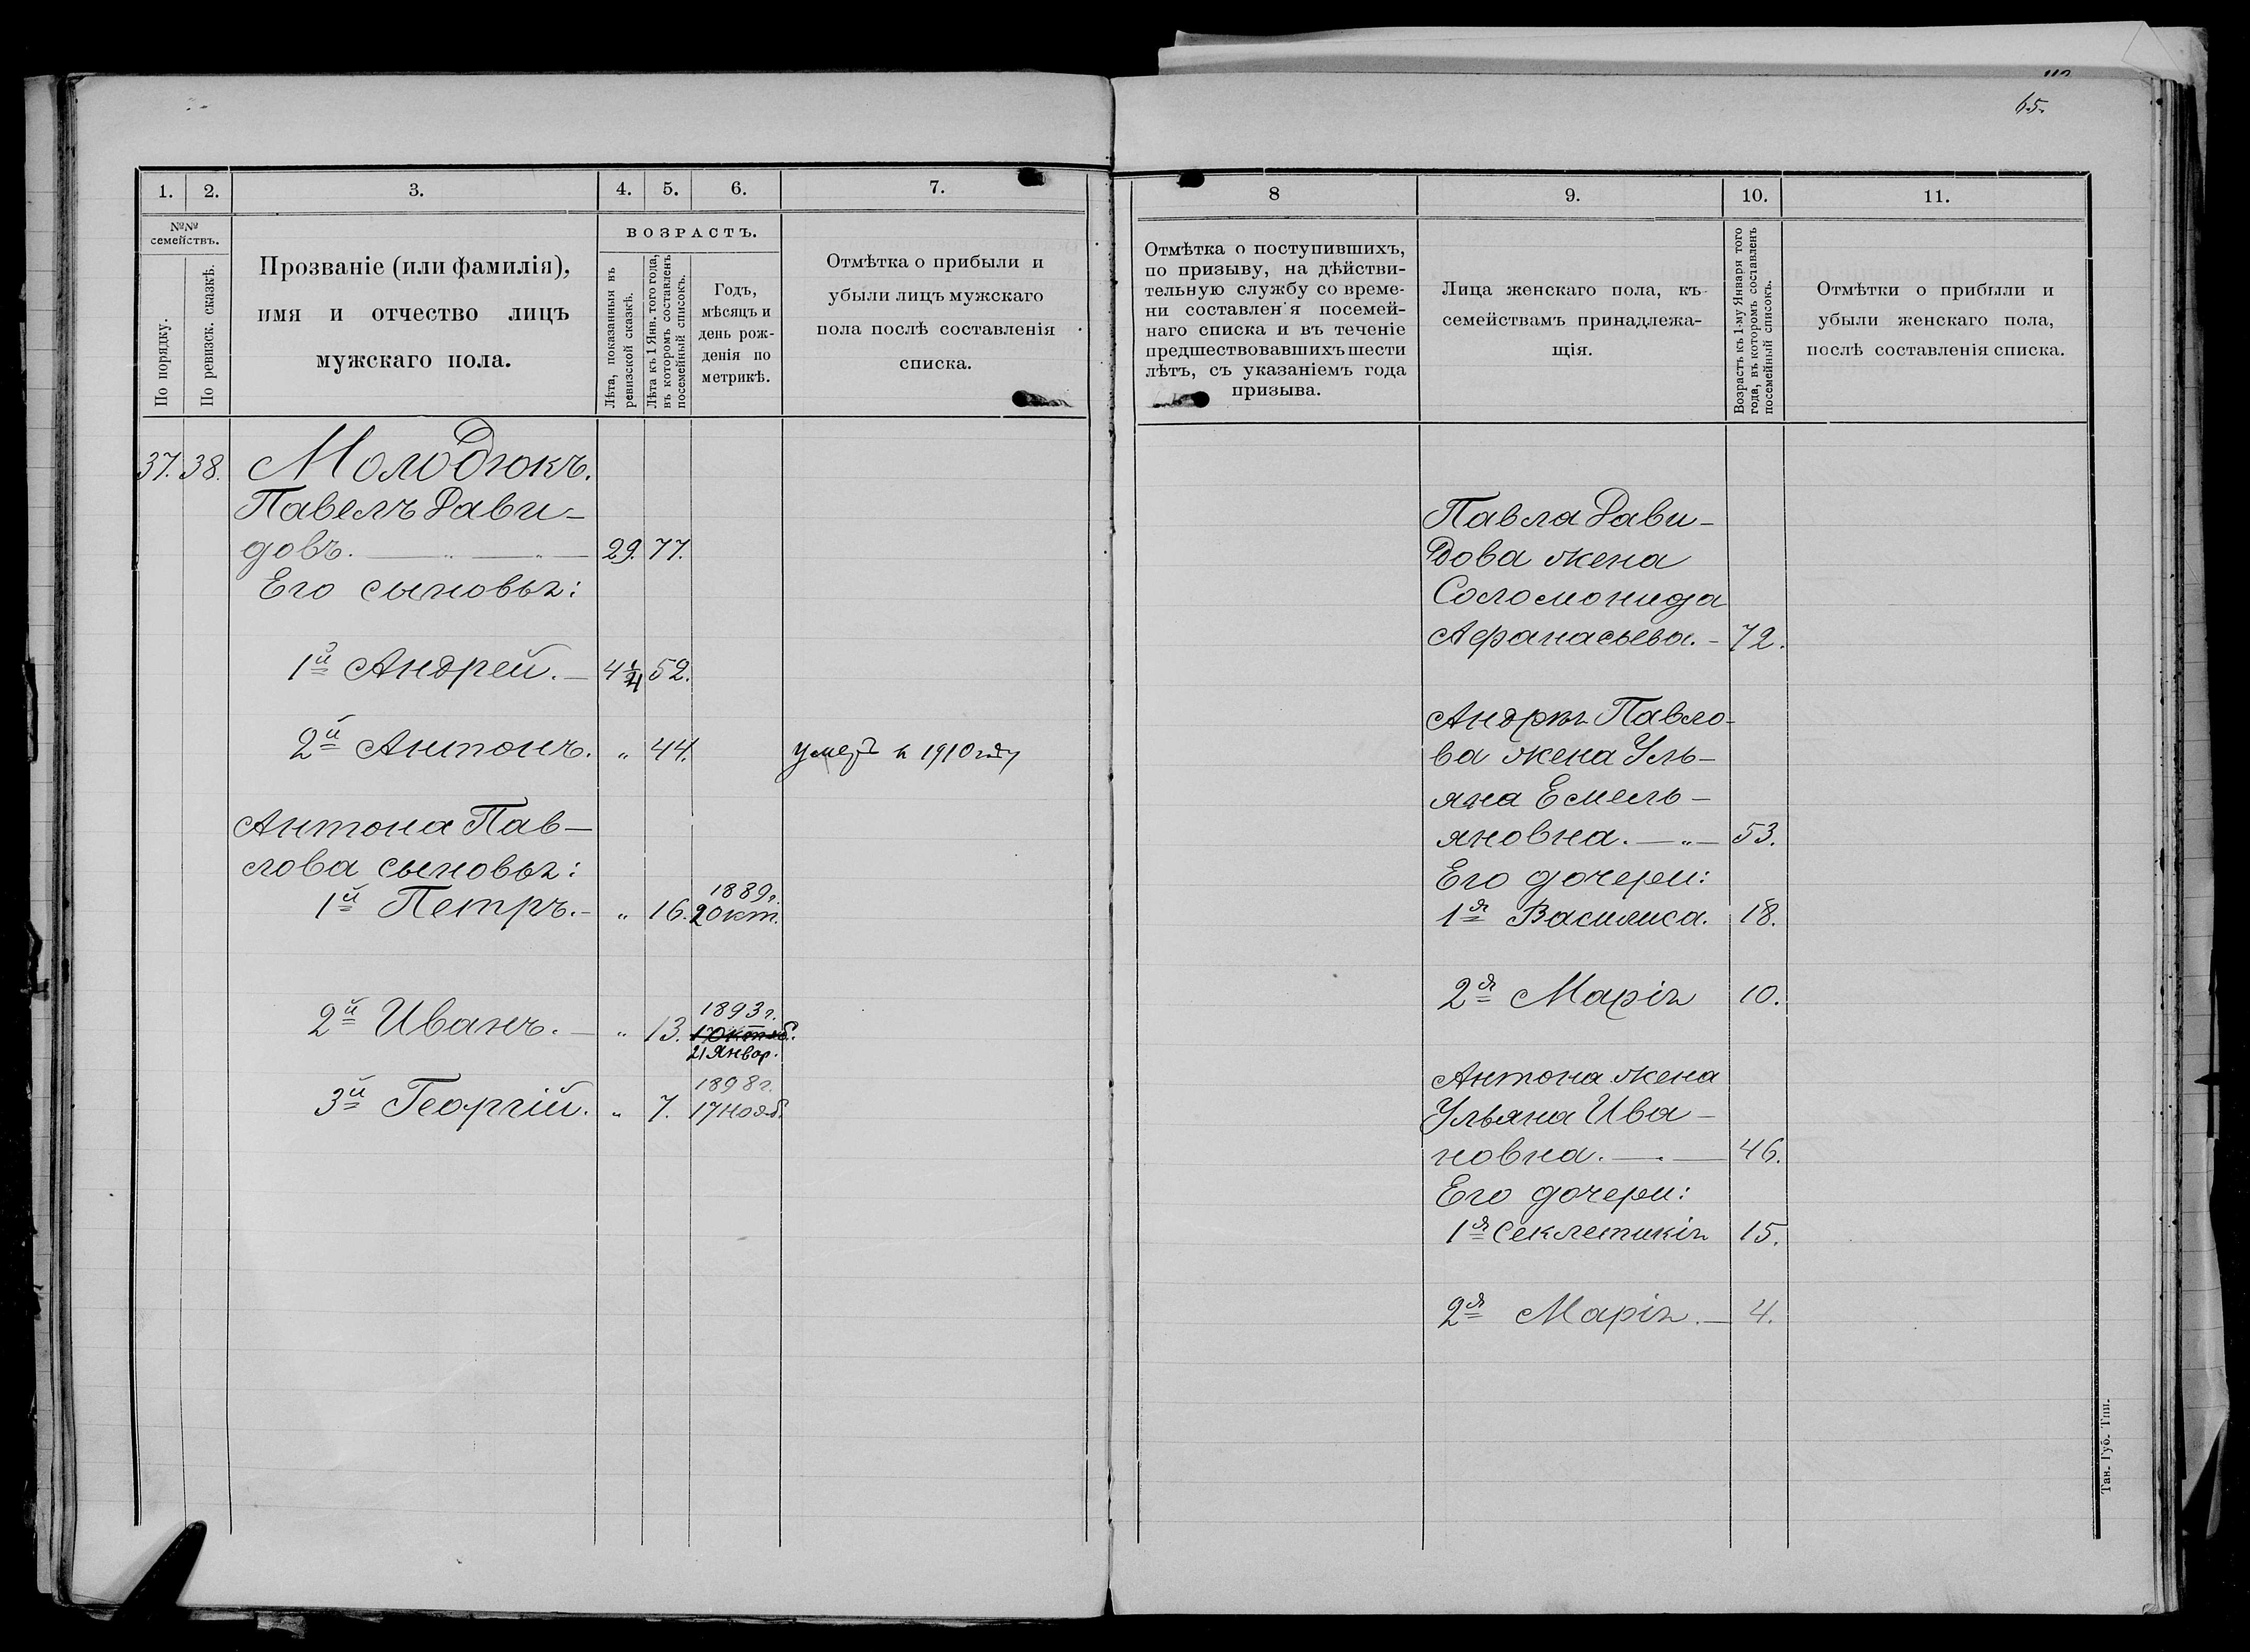 65.
1.
2.
3.
4.
5.
6.
7.
№№
семействъ.
По порядку.
По ревизск. сказкѣ.
Прозваніе (или фамилія),
имя и отчество лицъ
мужскаго пола.
ВОЗРАСТЪ.
Лѣта, показанныя въ
ревизской сказкѣ.
Лѣта къ 1 Янв. того года,
въ которомъ составленъ
посемейный списокъ.
Годъ,
мѣсяцъ и
день рож-
денія по
метрикѣ.
Отмѣтка о прибыли и
убыли лицъ мужскаго
пола послѣ составленія
списка.
37. 38. Молодюкъ.
Павелъ Дави-
довъ. 29. 77.
Его сыновья:
1й Андрей. 4 1/4 52.
2й Антонъ. " 44. умеръ в 1910 году
Антона Пав-
лова сыновья:
1889г.
1й Петръ. " 16. 2 Окт.
1893г.
2й Иванъ. " 13. 1 Октяб.
21 Январ.
1898г.
3й Георгій. " 7. 17 Нояб.
8
9.
10.
11.
Отмѣтка о поступившихъ,
по призыву, на дѣйстви-
тельную службу со време-
ни составленія посемей-
наго списка и въ теченіе
предшествовавшихъ шести
лѣтъ, съ указаніемъ года
призыва.
Лица женскаго пола, къ
семействамъ принадлежа-
щія.
Возрастъ къ 1-му Января того
года, въ которомъ составленъ
посемейный списокъ.
Отмѣтки о прибыли и
убыли женскаго пола,
послѣ составленія списка.
Павла Дави-
дова жена
Соломонида
Афанасьева. 72.
Андрея Павло-
ва жена Уль-
яна Емель-
яновна. 53.
Его дочери:
1я Василиса. 18.
2я Марія 10.
Антона жена
Ульяна Ива-
новна. 46.
Его дочери:
1я Секлетикія 15.
2я Марія. 4.
Тан. Губ. Тип.